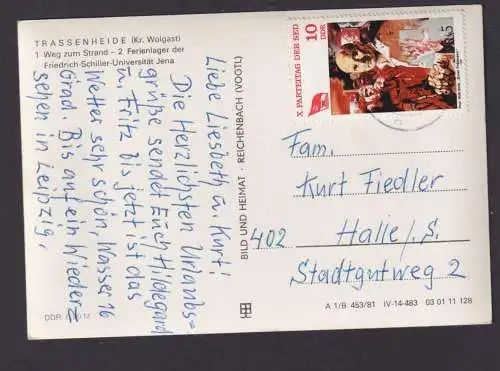 TRASSENHEIDE (Kr. Wolgast)
1 Weg zum Strand – 2 Ferienlager der
Friedrich-Schiller-Universität Jena
Liebe Liesbeth u. Kurt!
Die Herzlichsten Urlaubs=
grüße sendet Euch Hildegard
u. Fritz bis jetzt ist das
Wetter sehr schön, Wasser 16
Grad. Bis auf ein Wieder=
sehen in Leipzig,
DDR
M
BILD UND HEIMAT · REICHENBACH (VOGTL)
X. PARTEITAG DER SED
10
DDR
+5
Fam.
Kurt Fiedler
402 Halle/S.
Stadtgutweg 2
A 1/B 453/81 IV-14-483 03 01 11 128